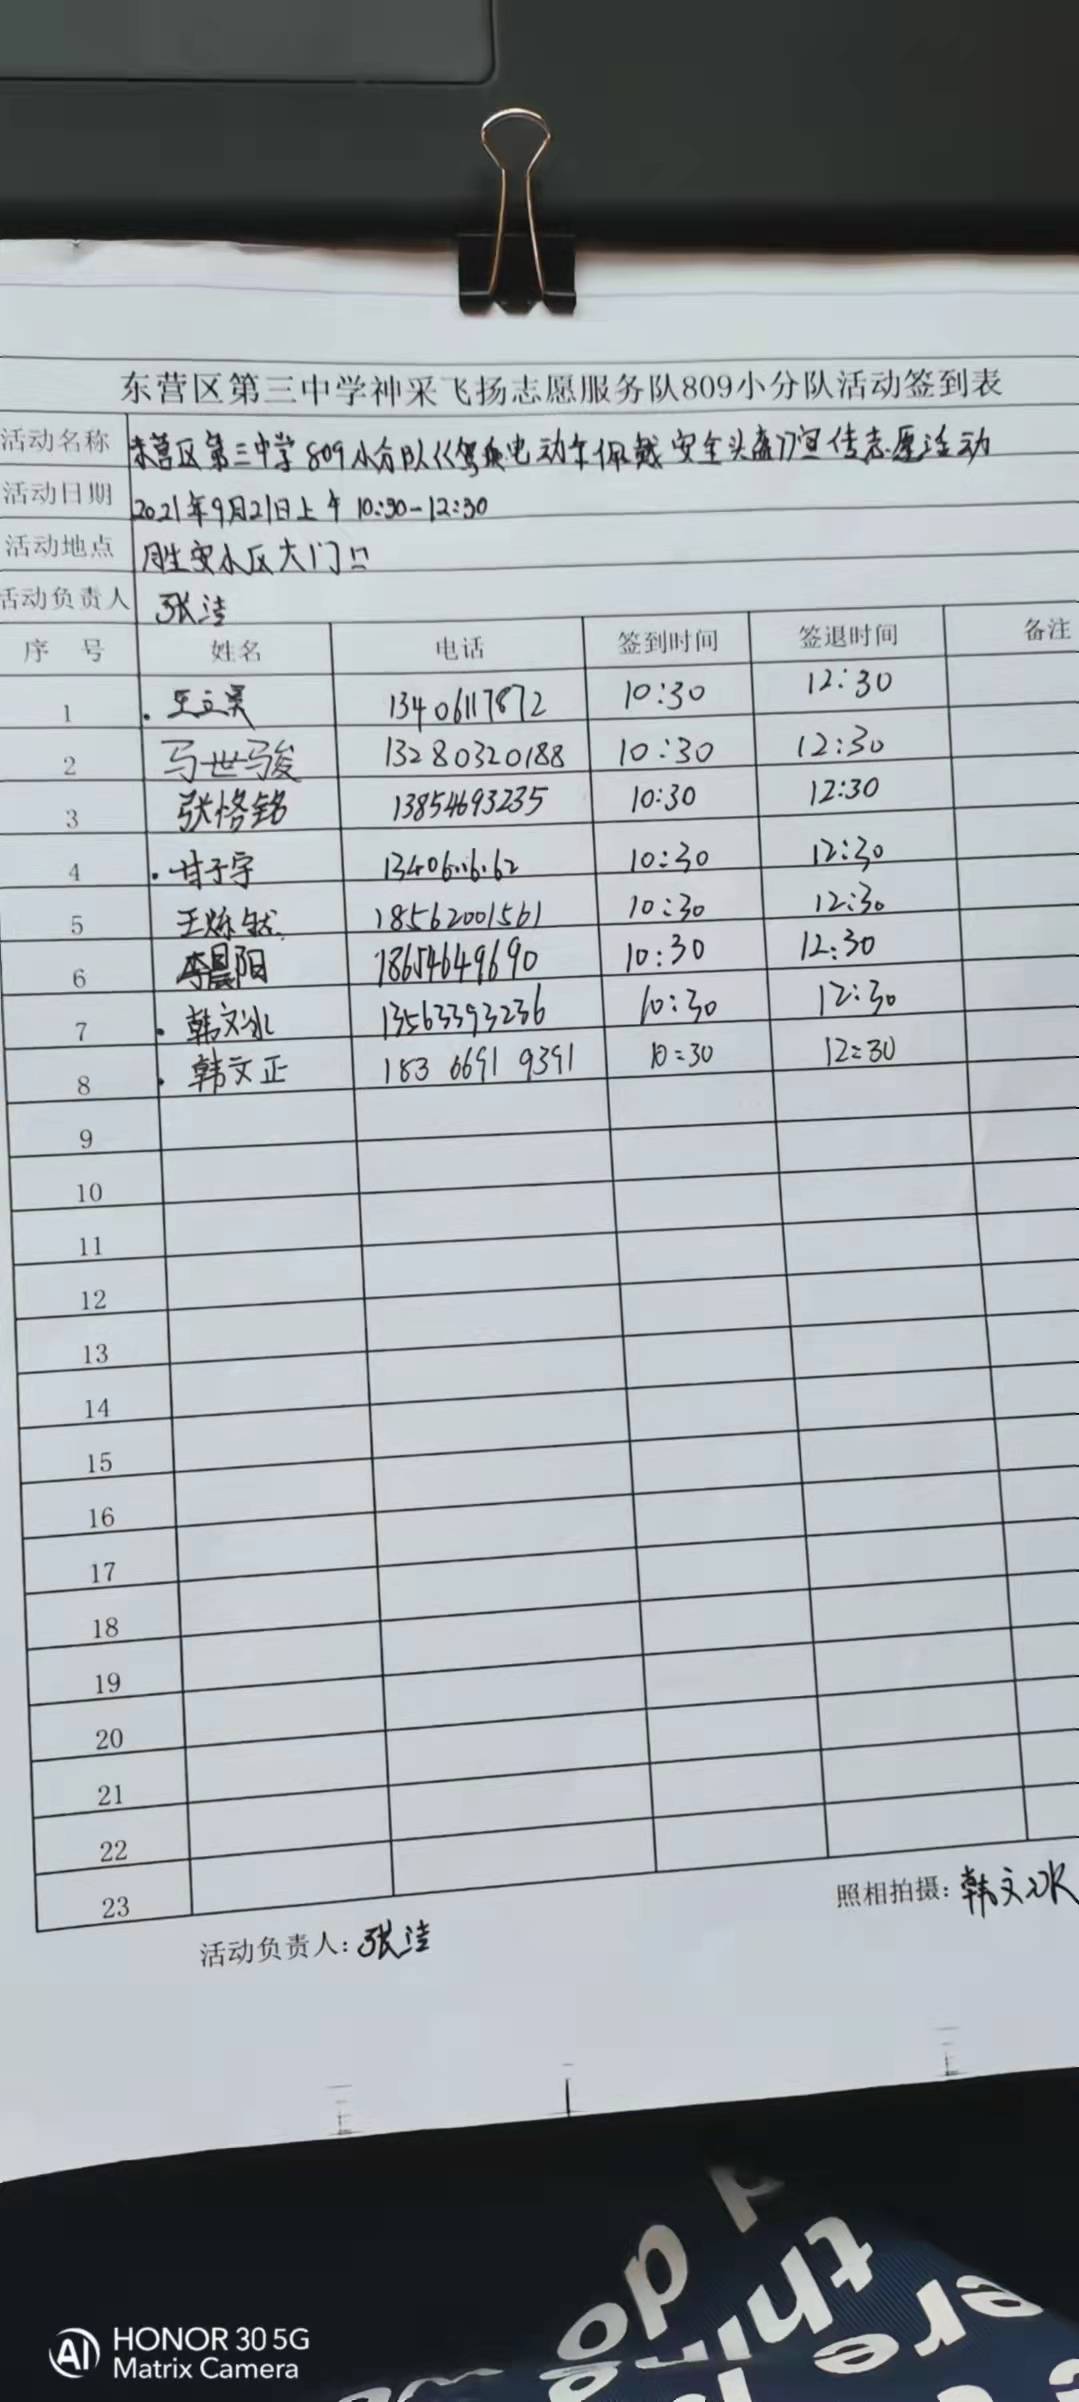 东营区第三中学神采飞扬志愿服务队809小分队活动签到表
活动名称 东营区第三中学809小分队《驾乘电动车佩戴安全头盔》宣传志愿活动
活动日期 2021年9月21日上午 10:30-12:30
活动地点 胜安小区大门口
活动负责人 张洁
序 号 姓名 电话 签到时间 签退时间 备注
1 王立昊 13406117872 10:30 12:30
2 马世骏 13280320188 10:30 12:30
3 张恪铭 13854693235 10:30 12:30
4 甘子宇 10:30 12:30
5 王烁 18562001561 10:30 12:30
6 李晨阳 18654649690 10:30 12:30
7 韩文冰 13563393236 10:30 12:30
8 韩文正 183 6691 9391 10:30 12:30
9
10
11
12
13
14
15
16
17
18
19
20
21
22
23
照相拍摄：韩文冰
活动负责人：张洁
do
thing
ere
AI HONOR 30 5G
Matrix Camera